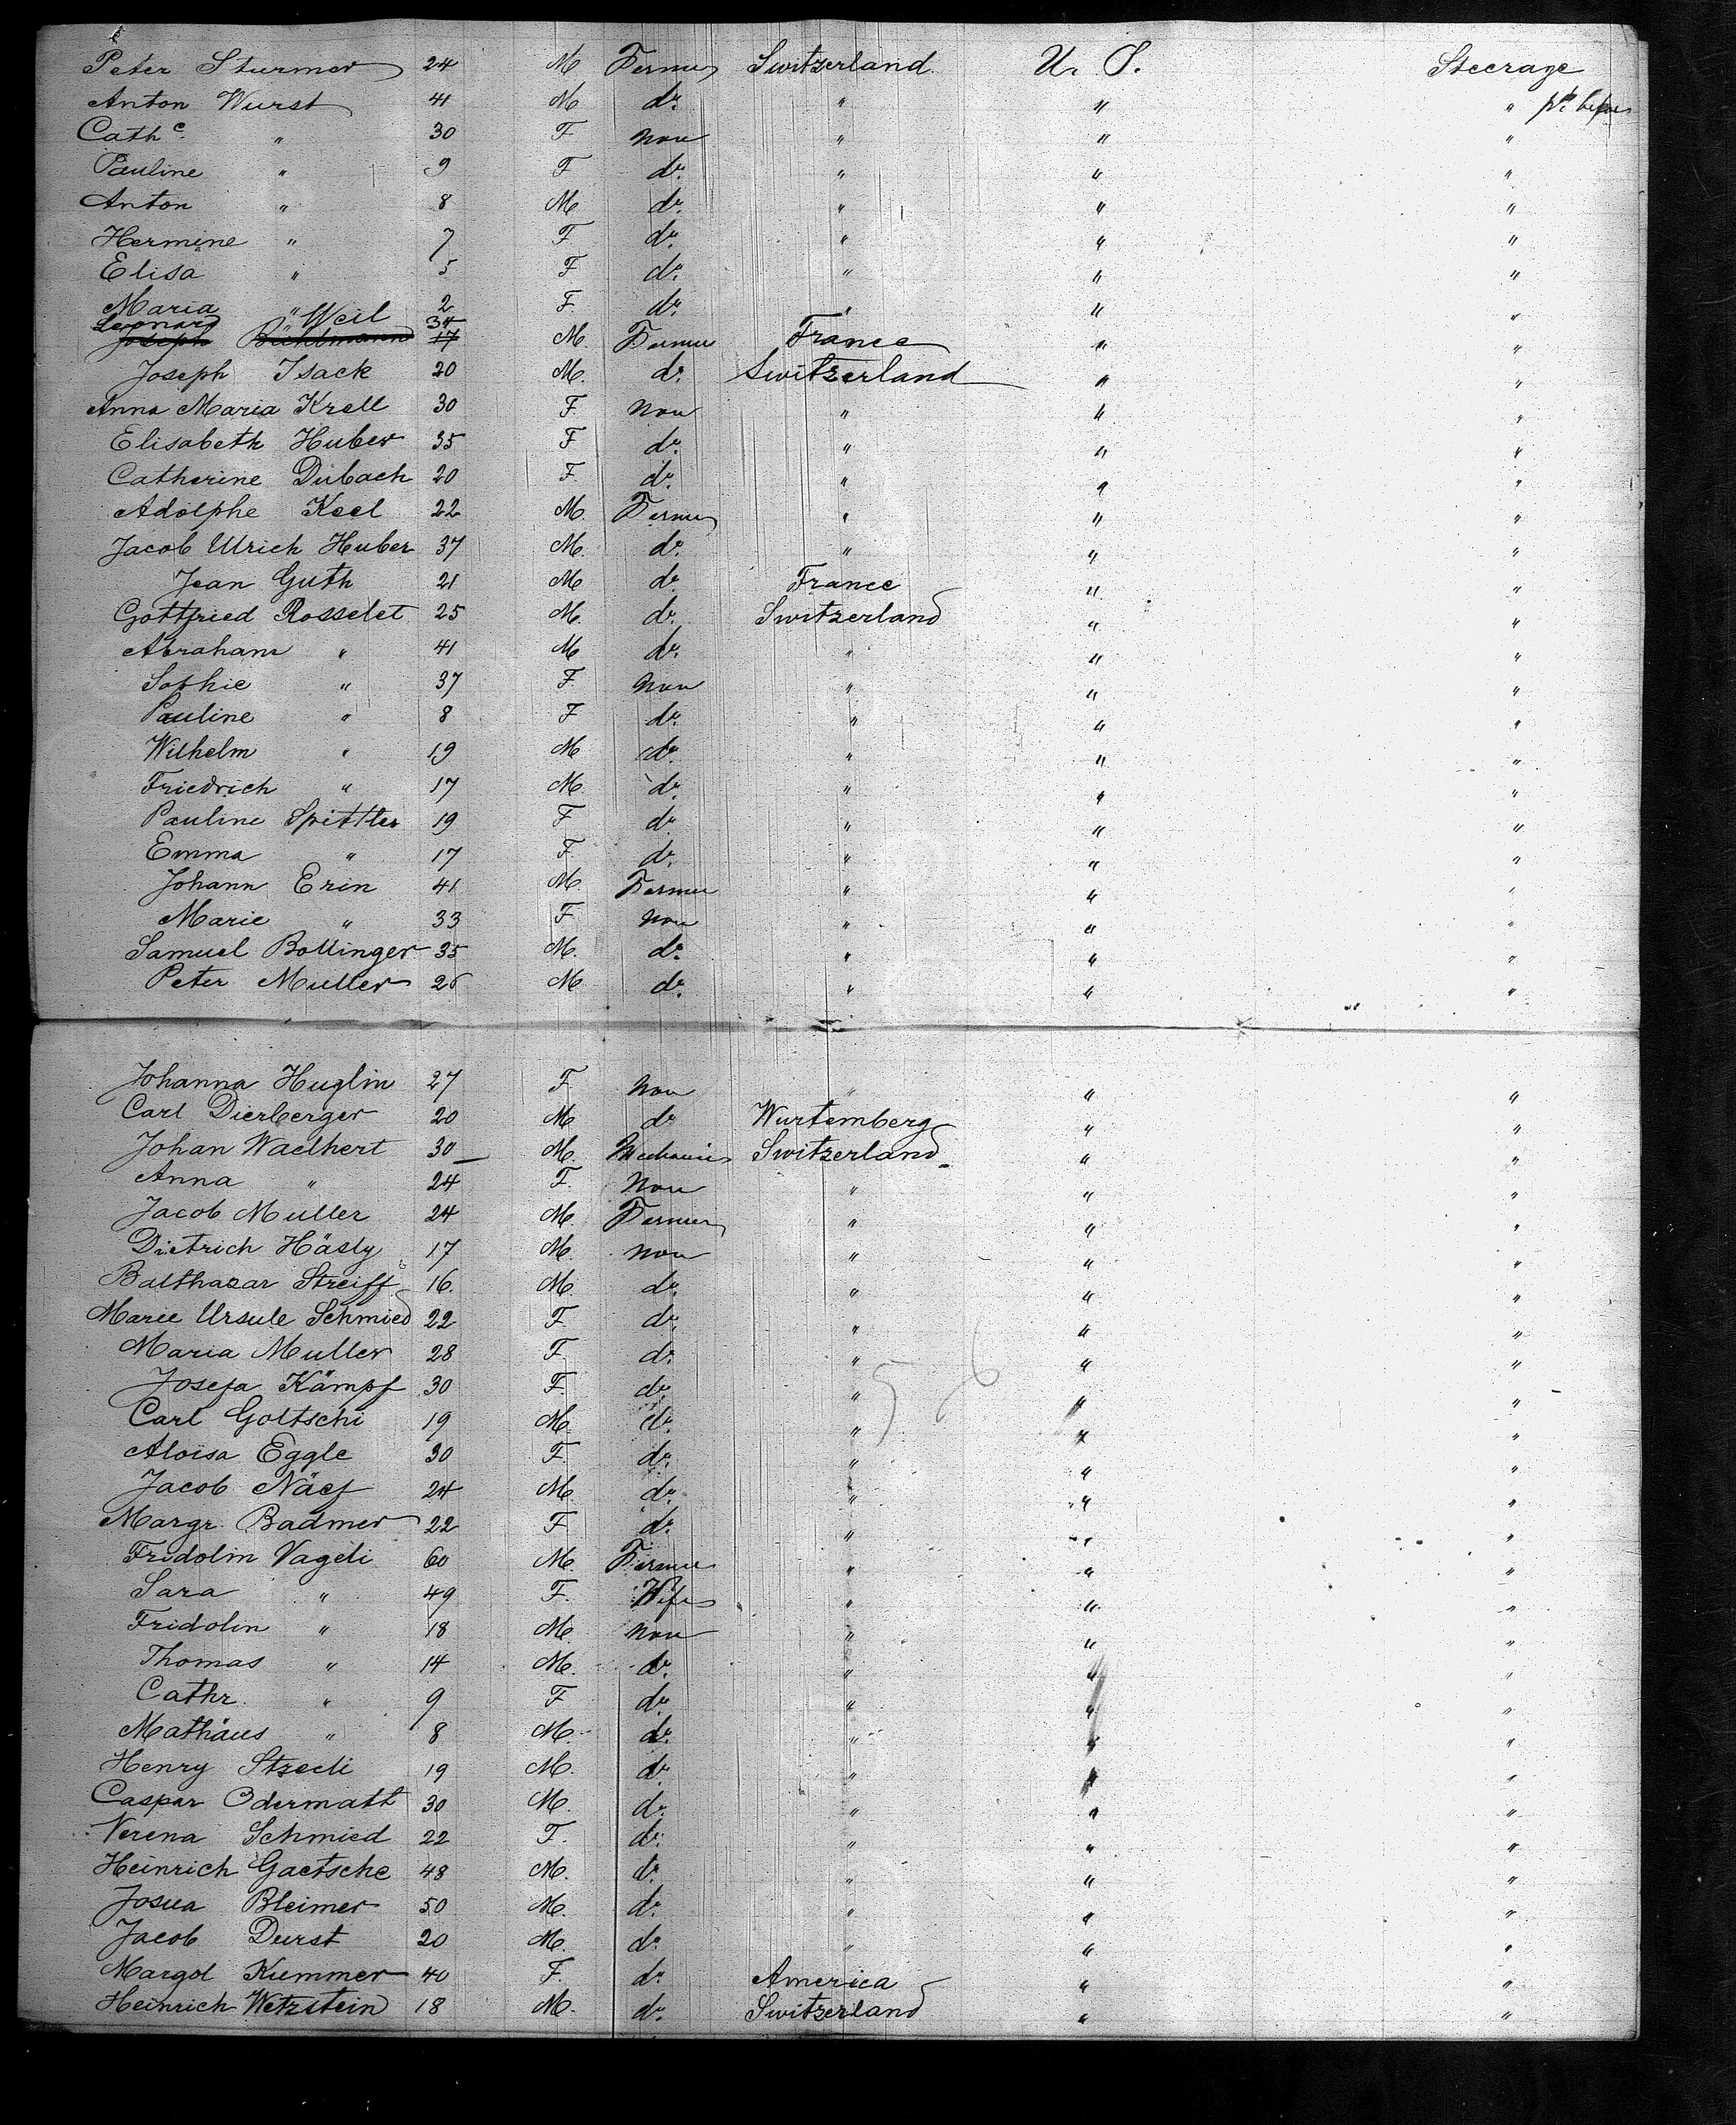 Peter Sturmer 24 M Farmer Switzerland U. S. Steerage
Anton Wurst 41 M do. " " "
Cathe. " 30 F none " " "
Pauline " 9 F do. " " "
Anton " 8 M do. " " "
Hermine " 7 F do. " " "
Elisa " 5 F do. " " "
Maria " 2 F do. " " "
Leonard Weil 34
Joseph Bühlmann 17 M. Farmer France " "
Joseph Isack 20 M. do. Switzerland " "
Anna Maria Krell 30 F. none " " "
Elisabeth Huber 35 F do. " " "
Catherine Dubach 20 F. do. " " "
Adolphe Keel 22 M. Farmer " " "
Jacob Ulrich Huber 37 M. do. " " "
Jean Guth 21 M do. France " "
Gottfried Rosselet 25 M. do. Switzerland " "
Abraham " 41 M do. " " "
Sophie " 37 F. none " " "
Pauline " 8 F do. " " "
Wilhelm " 19 M do. " " "
Friedrich " 17 M. do. " " "
Pauline Spittler 19 F do. " " "
Emma " 17 F. do. " " "
Johann Erin 41 M. Farmer " " "
Marie " 33 F none " " "
Samuel Bollinger 35 M. do. " " "
Peter Muller 26 M do. " " "
Johanna Huglin 27 F. none " " "
Carl Dierberger 20 M do Wurtemberg " "
Johan Waelhert 30 M. Mechanic Switzerland " "
Anna " 24 F. none " " "
Jacob Muller 24 M. Farmer " " "
Dietrich Häsly 17 M. none " " "
Balthasar Streiff 16. M. do. " " "
Marie Ursule Schmied 22 F. do. " " "
Maria Muller 28 F. do. " " "
Josefa Kämpf 30 F. do. " " "
Carl Goltschi 19 M. do. " " "
Aloisa Eggle 30 F. do. " " "
Jacob Näef 24 M. do. " " "
Margr. Badmer 22 F do. " " "
Fridolin Vageli 60 M. Farmer " " "
Sara " 49 F. Wife " " "
Fridolin " 18 M. none " " "
Thomas " 14 M. do. " " "
Cathr. " 9 F do. " " "
Mathäus " 8 M. do. " " "
Henry Streeli 19 M. do. " " "
Caspar Odermatt 30 M. do. " " "
Verena Schmied 22 F. do. " " "
Heinrich Gaetsche 48 M. do. " " "
Josua Bleimer 50 M. do. " " "
Jacob Durst 20 M. do. " " "
Margot Kummer 40 F. do. America " "
Heinrich Wetzstein 18 M. do. Switzerland " "